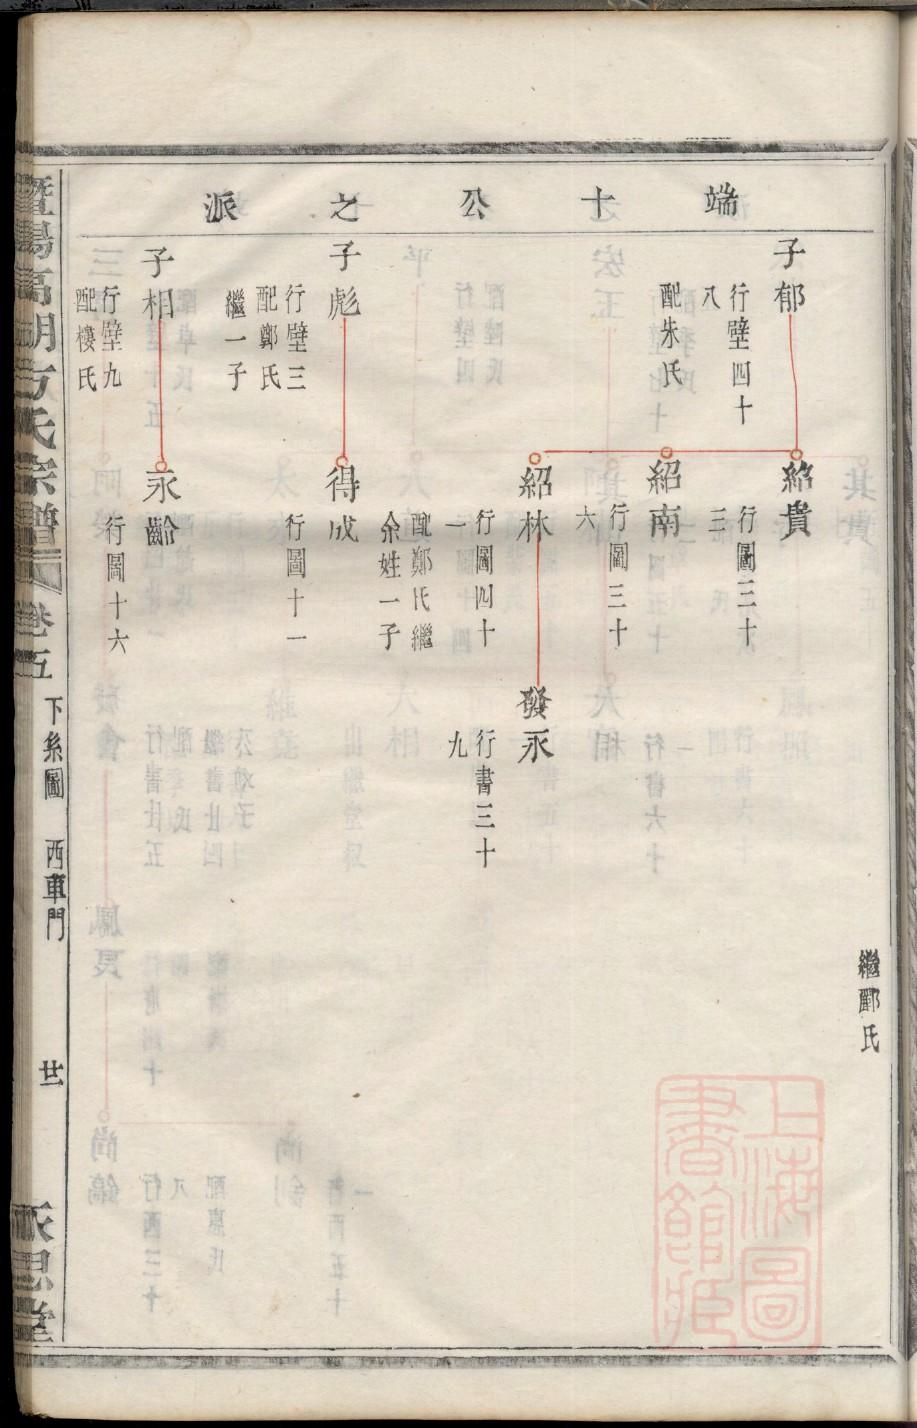 端十公之派
子郁
行壁四十
八
配朱氏
紹貴
行圖三十
三
紹南
行圖三十
六
紹林
行圖四十
一
配鄭氏繼
余姓一子
發永
行書三十
九
繼酈氏
子彪
行壁三
配鄭氏
繼一子
得成
行圖十一
子相
行壁九
配樓氏
永齡
行圖十六
暨陽高湖方氏宗譜
卷五
下系圖
西車門
廿
永思堂
上海圖
書館藏